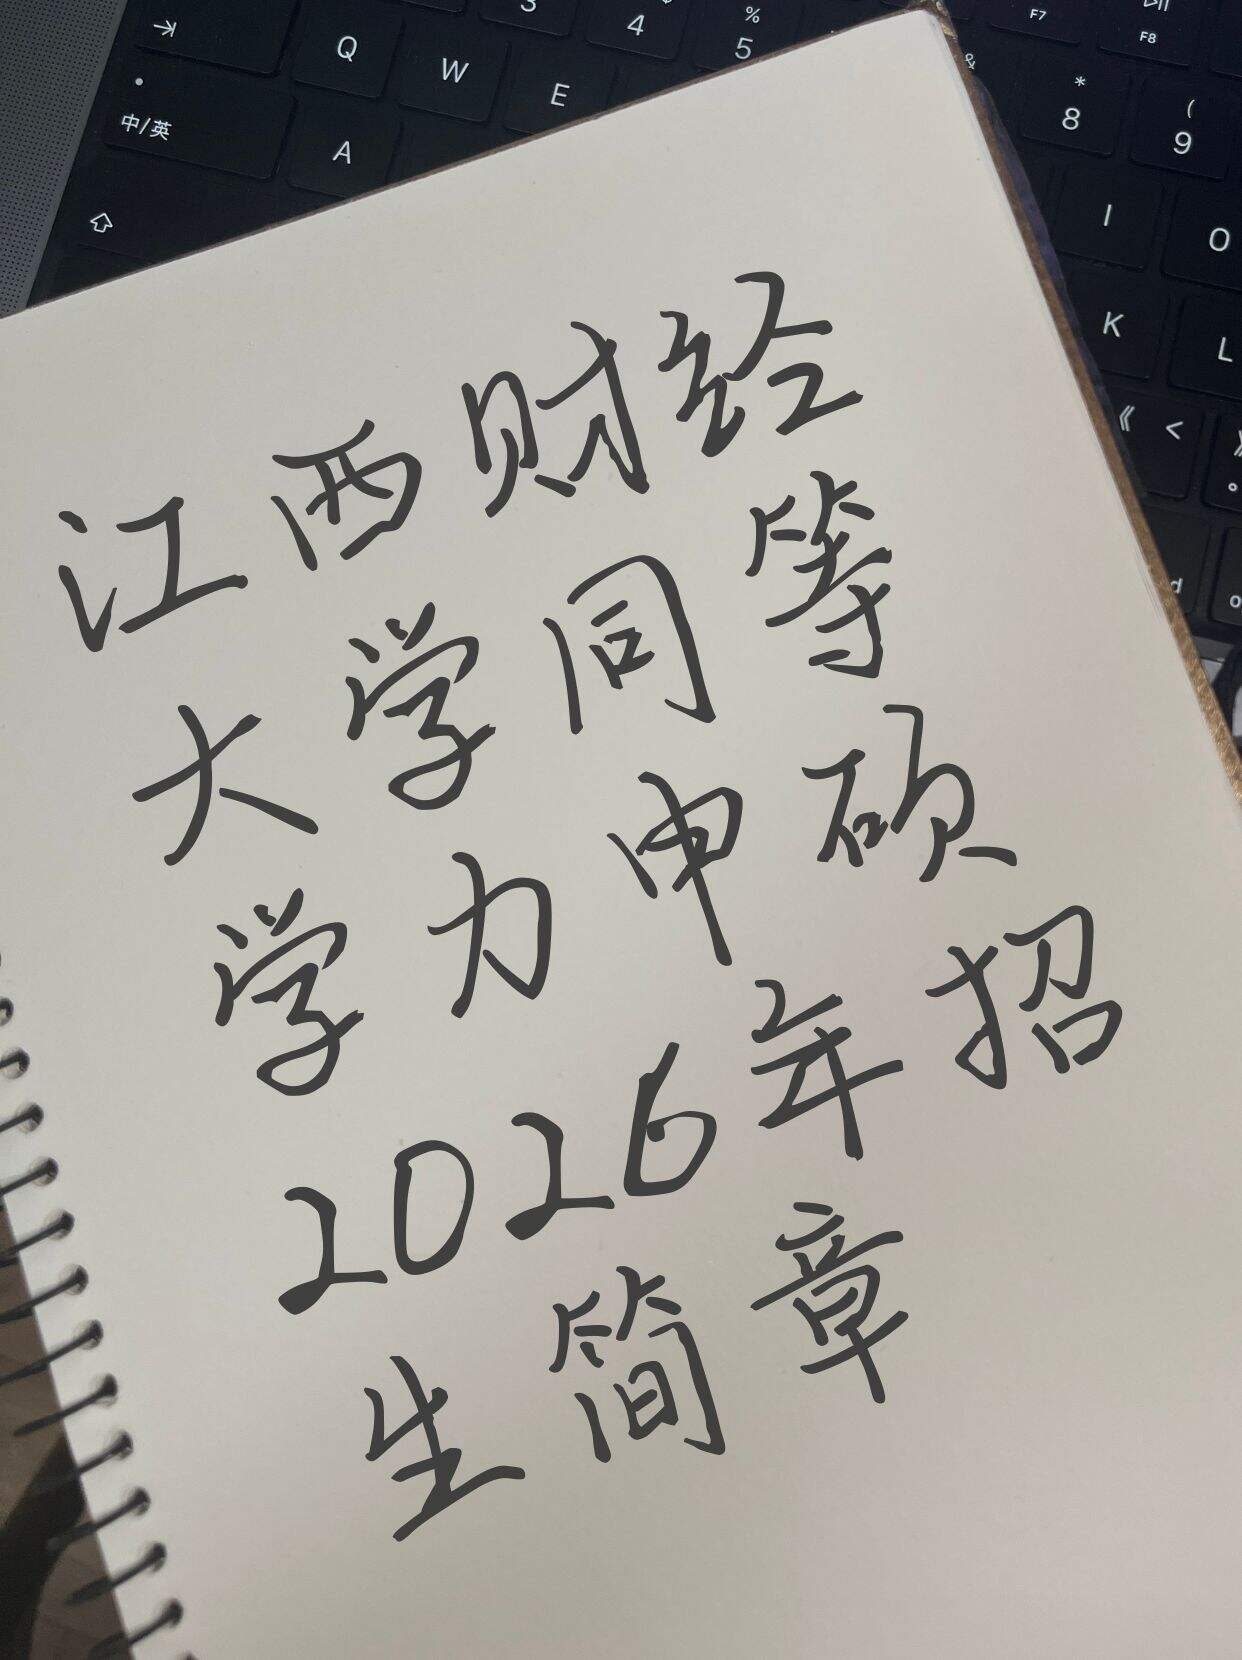 3 4 % 5 F7 F8
Q W E & * 8 ( 9
中/英 A I O
K L
《 <
江西财经
大学同等
学力申硕
2026年招
生简章